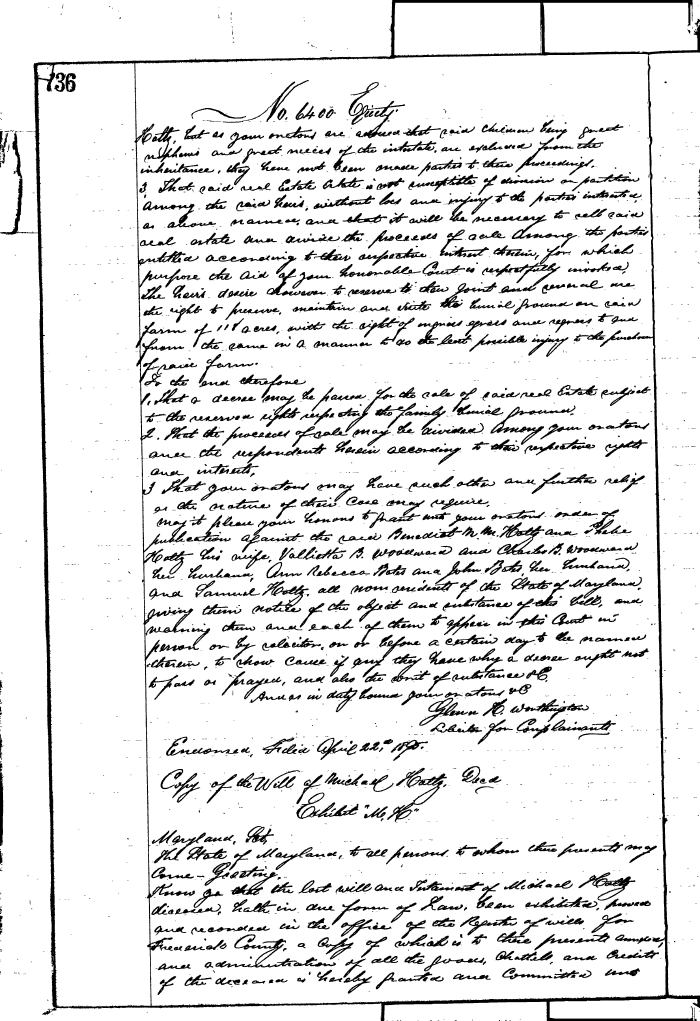 736
No. 6400 Equity
Hotty, but as your orators are advised that said children being great
nephews and great nieces of the intestate, are excluded from the
inheritance, they have not been made parties to these proceedings.
3. That said real Estate is not susceptible of division or partition
among the said heirs, without loss and injury to the parties interested
as above named, and that it will be necessary to sell said
real estate and divide the proceeds of sale among the parties
entitled according to their respective interest therein, for which
purpose the aid of your honorable Court is respectfully invoked.
The heirs desire however to reserve to their joint and several use
the right to preserve, maintain and visit the burial ground on said
farm of 118 acres, with the right of ingress egress and regress to and
from the same in a manner to do the least possible injury to the purchaser
of said farm.
To the end therefore
1. That a decree may be passed for the sale of said real Estate subject
to the reserved rights respecting the family burial ground.
2. That the proceeds of sale may be divided among your orators
and the respondents herein according to their respective rights
and interests,
3 That your orators may have such other and further relief
as the nature of their case may require.
may it please your honors to grant unto your orators order of
publication against the said Benedict M. M. Hotty and Phebe
Hotty his wife, Valliette B. Woodward and Charles B. Woodward
her husband, Ann Rebecca Bates and John Bates, her husband,
and Samuel Hotty, all nonresidents of the State of Maryland,
giving them notice of the object and substance of this bill, and
warning them and each of them to appear in this Court in
person or by solicitor, on or before a certain day to be named
therein, to show cause if any they have why a decree ought not
to pass as prayed, and also the writ of &C.
And as in duty bound your orators &C
Glenn H. Worthington
Solicitor for Complainants
Endorsed, Filed April 22nd 1895.
Copy of the Will of Michael Hotty, Decd
Exhibit "M. H"
Maryland, Sct,
The State of Maryland, to all persons to whom these presents may
Come - Greeting.
Know ye that the last will and Testament of Michael Hotty
deceased, hath in due form of Law, been exhibited, proved
and recorded in the office of the Register of wills for
Frederick County, a copy of which is to these presents annexed,
and administration of all the goods, Chattels, and Credits
of the deceased is hereby granted and Committed unto